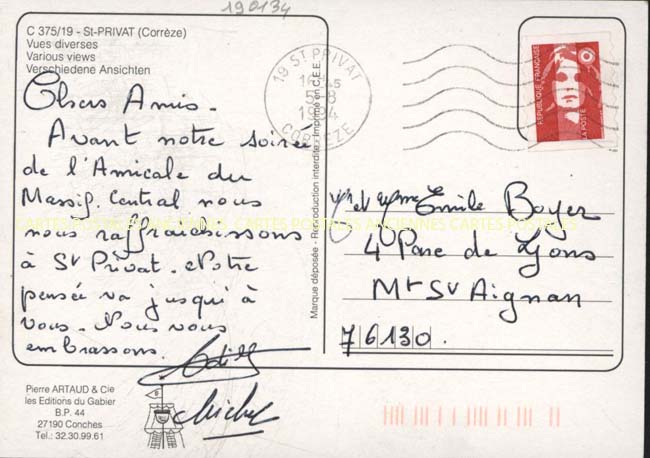 190134
C 375/19 - St-PRIVAT (Corrèze)
Vues diverses
Various views
Verschiedene Ansichten
Chers Amis.
Avant notre soirée
de l'Amicale du
Massif. Central nous
nous raffraichissons
à St Privat. Notre
pensée va jusqu'à
vous. Nous vous
embrassons.
Odile
Michel
Marque déposée - Reproduction interdite - Imprimé en C.E.E.
19 ST PRIVAT
16H45
5-8
1994
CORREZE
REPUBLIQUE FRANÇAISE
LA POSTE
Mr et Mme Emile Boyer
4 Parc de Lyons
Mt St Aignan
76130.
CARTES POSTALES ANCIENNES CARTES POSTALES
Pierre ARTAUD & Cie
les Editions du Gabier
B.P. 44
27190 Conches
Tel.: 32.30.99.61